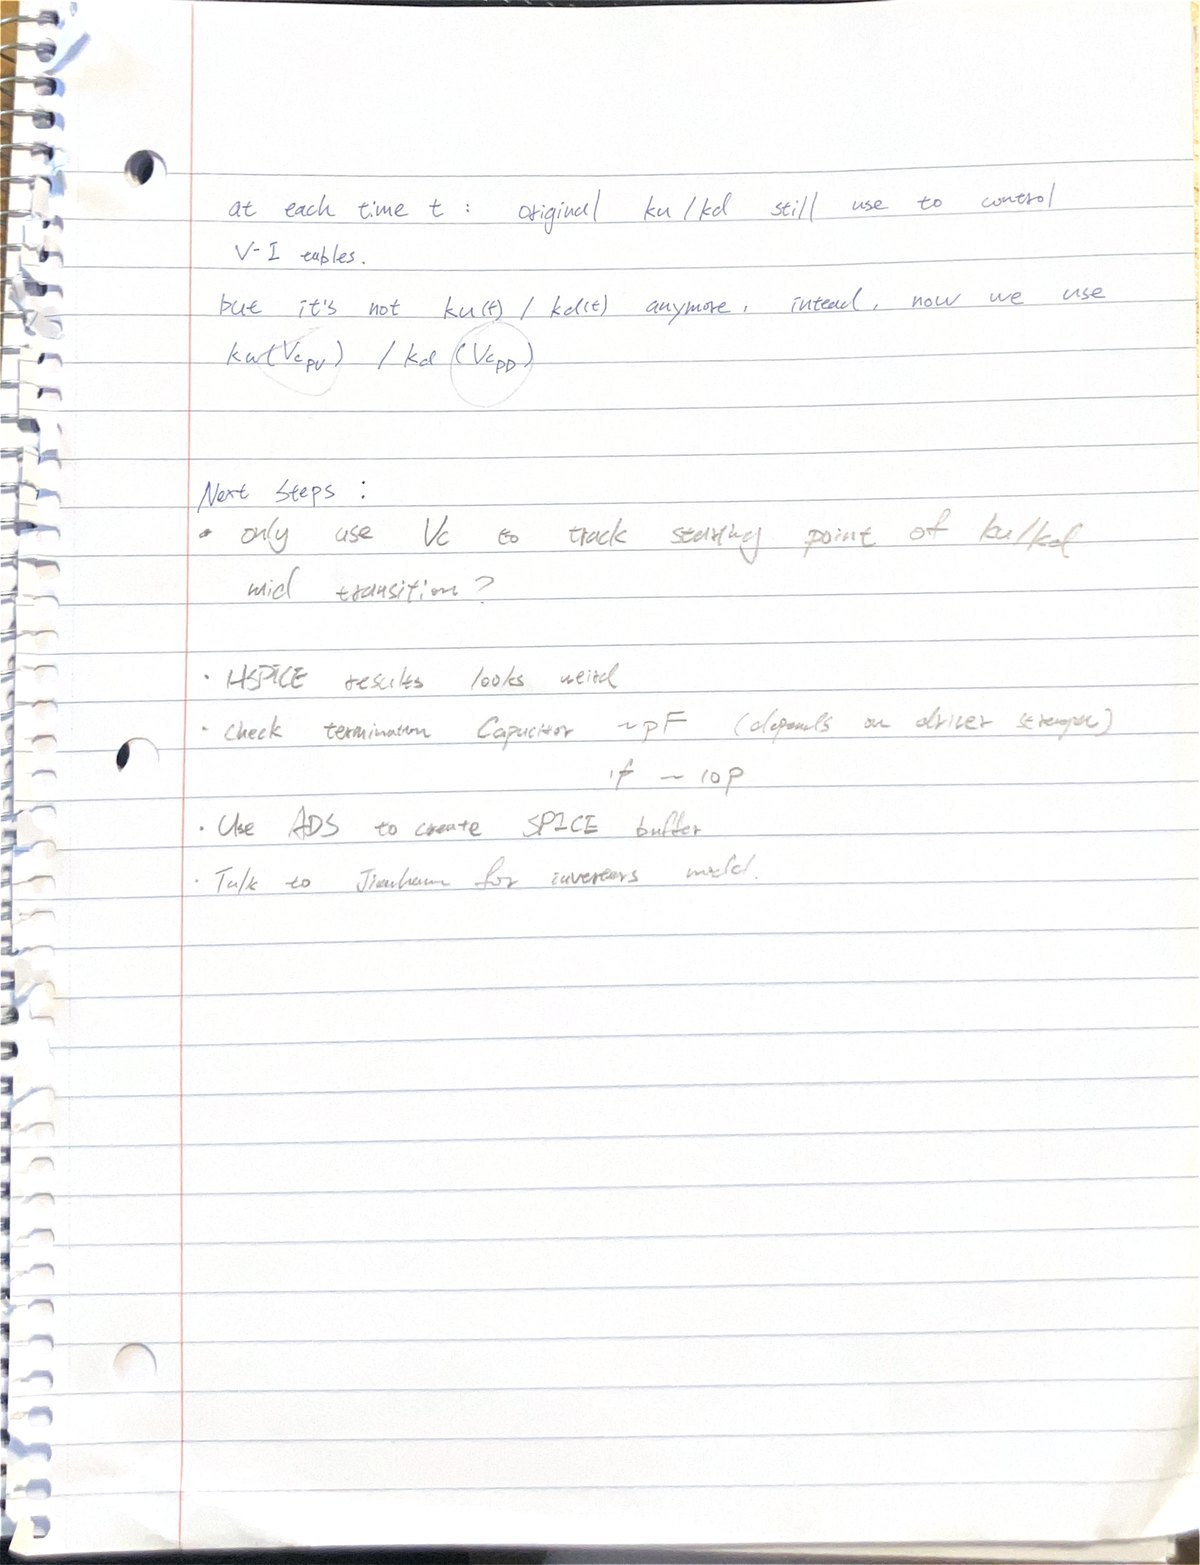 at each time t : original ku/kd still use to control
V-I tables.
but it's not ku(t) / kd(t) anymore, intead, now we use
ku(VcPU) / kd (VcPD)
Next Steps :
• only use Vc to track starting point of ku/kd
mid transition?
· HSPICE results looks weird
· check termination Capacitor ~pF (depends on driver strength)
if ~ 10p
· Use ADS to create SPICE buffer
· Talk to for inverters model.